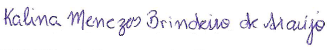 Kalina Menezes Brindeiro de Araújo